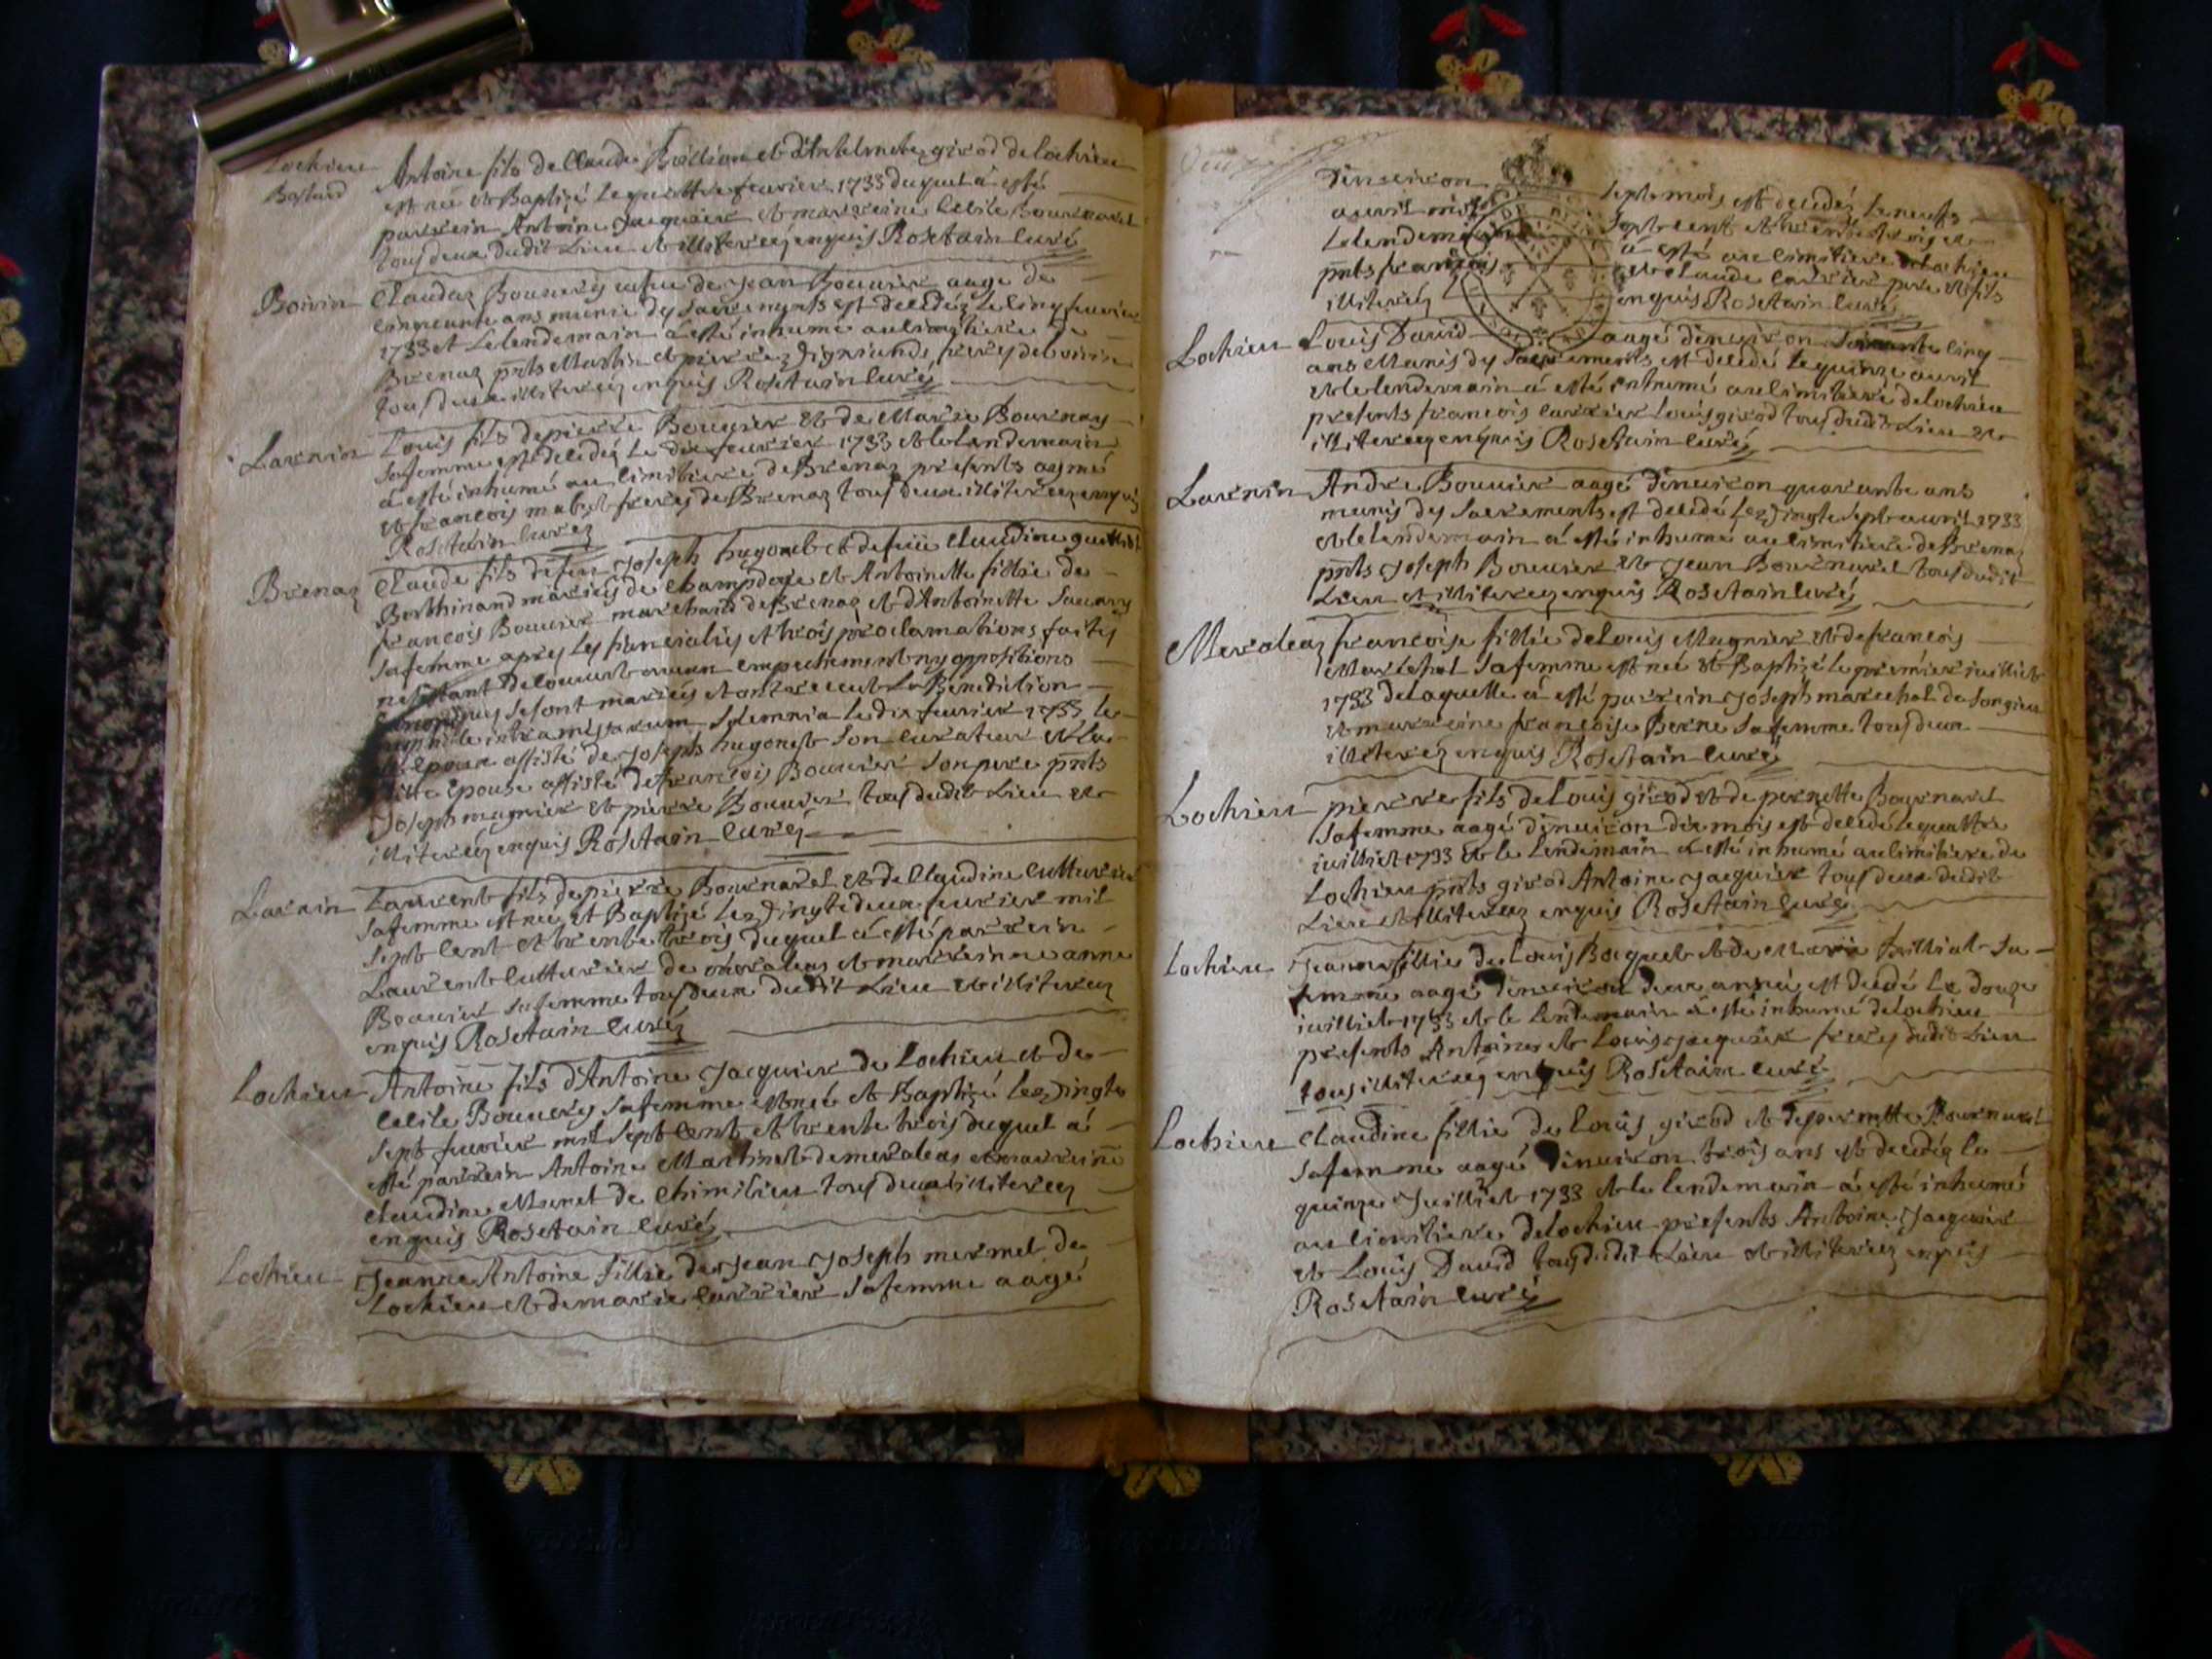 Lochieu
Bastard
Antoine fils de Claude Brillion et d'Anthelmette girod de lochieu
est né et Baptizé le quattre feurier 1733 duquel á esté
parrein Antoine Jacquier et marreine Cecile Bournarel
tous deux dudit Lieu et illiterez enquis Rosetain curé
Boirin
Claudaz Bouuery uefue de Jean Bouuier aage de
cinquante ans munie dy Sacrements est decedéz le cinq feurier
1733 et Le lendemain á esté inhumé au cimitiere de
Brenaz pnts Martin et pierre frerez de boirin
tous deux illiterez enquis Rosetain curé
Larnin
Louis fils de pierre Bouuier et de Marie Bournay
Safemme est decedéz Le dix feurier 1733 et le landemain
á esté inhumé au cimitiere de Brenaz presents aymé
et francois frerez de Brenaz tous deux illiterez enquis
Rosetain curez
Brenaz
Claude fils de feu Joseph hugonet et de feüe Claudine
Berthinand mariés de Champdore et Antoinette fillie de
francois Bouuier marchand de Brenaz et d'Antoinette Sauary
Safemme apres Les fiancialies et trois proclamations faites
nestant decouuert aucun empechement ny oppositions
Sesont mariés et ont receut La Benediction
nuptiale intra missarum Solemnia le dix feurier 1733 le
epoux assisté de Joseph hugonet Son curateur et la
ditte Epouse assisté de francois Bouuier Son pere pnts
Joseph magnier et pierre Bouuier tous dudit Lieu et
illiteréz enquis Rosetain curé
Larnin
Laurent fils de pierre Bournarel et de Claudine Cutturier
Safemme est né et Baptizé Le vingte deux feurier mil
Sept Cent et trente trois duquel á esté parrein
Laurent Cutturier de meraleaz et marreinne anne
Bouuier Safemme tous deux dudit Lieu et illiterez
enquis Rosetain curéz
Lochieu
Antoine fils d'Antoine Jacquier de Lochieu et de
Cecile Bouuery Safemme est né et Baptizé Le vingte
Sept feurier mil Sept Cent et trente trois duquel á
esté parrein Antoine Martinet de meraleaz et marreine
Claudine Munet de Chimilieu tous deux illiterez
enquis Rosetain curé
Lochieu
Jeanne Antoine fillie de Jean Joseph mermet de
Lochieu et de marie currier Safemme aagé
d'enuiron Septe mois est decedéz Le neufs
auril mil Sept cent et trente trois et
Le lendemain á esté au cimitiere de lochieu
pnts francois et Claude Currier pere et fils
illiteréz enquis Rosetain curé
Lochieu
Louis Dauid aagé d'enuiron Soixante cinq
ans Munis dy Sacrements est decedé Le quinze auril
et le lendemain á esté inhumé au cimitiere de lochieu
presents francois currier Louis girod tous dudit Lieu et
illiterez enquis Rosetain curé
Larnin
Andre Bouuier aagé d'enuiron quarante ans
munis dy Sacrements est decedé Le vingte Sept auril 1733
et le lendemain á esté inhumé au cimitiere de Brenaz
pnts Joseph Bouuier et Jean Bournarel tous dudit
Lieu et illiterez enquis Rosetain curé
Meraleaz
francoise fillie de Louis Magnier et de francois
Marechal Safemme est neé et Baptizé Le premier iuilliet
1733 de laquelle á esté parrein Joseph marechal de Songieu
et marreine francoise Berne Safemme tous deux
illiterez enquis Rosetain curé
Lochieu
pierre fils de Louis girod et de pernette Bournarel
Safemme aagé d'enuiron dix mois est decedé Le quattre
iuilliet 1733 et le Lendemain á esté inhumé au cimitiere de
Lochieu pnts girod Antoine Jacquier tous deux dudit
Lieu et illiterez enquis Rosetain curé
Lochieu
Jeanne fillie de Louis Bocquet et de Marie Brilliat Sa
femme aagé d'enuiron deux anneé est decedé Le douze
iuilliet 1733 et le Lendemain á esté inhumé de Lochieu
presents Antoine et Louis Jacquier frerez dudit Lieu
tous illiterez enquis Rosetain curé
Lochieu
Claudine fillie de Louis girod et de pernette Bournarel
Safemme aagé d'enuiron trois ans est decedéz le
quinze Juilliet 1733 et le lendemain á esté inhumé
au cimitiere de lochieu presents Antoine Jacquier
et Louis Dauid tous dudit Lieu et illiterez enquis
Rosetain curé